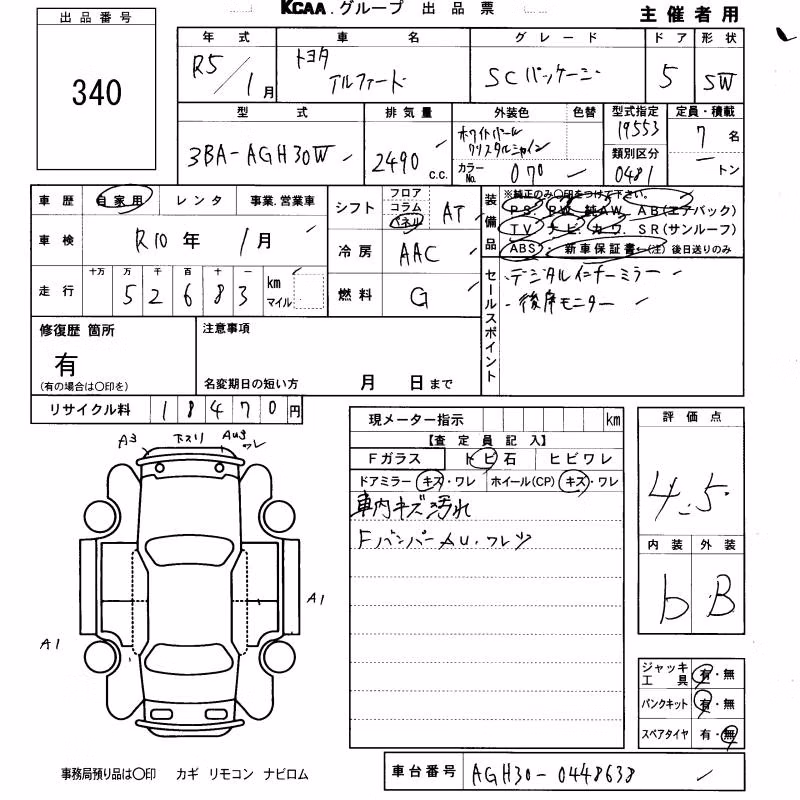 KCAA.グループ 出品票
主催者用
出品番号
340
年式
R5/1月
車名
トヨタ
アルファード
グレード
SCパッケージ
ドア
5
形状
SW
型式
3BA-AGH30W
排気量
2490 c.c.
外装色
ホワイトパール
クリスタルシャイン
色替
カラーNo. 070
型式指定
19553
類別区分
0481
定員・積載
7名
ートン
車歴
自家用
レンタ
事業.営業車
車検
R10年 1月
走行
十万 万 千 百 十 一
5 2 6 8 3
km
マイル
シフト
フロア
コラム
パネル
AT
冷房
AAC
燃料
G
装備品
※純正のみ〇印をつけて下さい。
PS. PW. 純AW. AB(エアバック)
TV. ナビ. カワ. SR(サンルーフ)
ABS・新車保証書←(注) 後日送りのみ
セールスポイント
・デジタルインナーミラー
・後席モニター
修復歴 箇所
有
(有の場合は〇印を)
注意事項
名変期日の短い方 月 日まで
リサイクル料
18470円
現メーター指示
km
【査定員記入】
Fガラス
トビ石
ヒビワレ
ドアミラー キズ・ワレ
ホイール(CP) キズ・ワレ
車内キズ汚れ
Fバンパー AU.ワレ
評価点
4.5
内装
外装
b
B
ジャッキ
工具
有・無
パンクキット
有・無
スペアタイヤ
有・無
A3
下スリ
AU3
ワレ
A1
A1
事務局預り品は〇印 カギ リモコン ナビロム
車台番号
AGH30-0448638